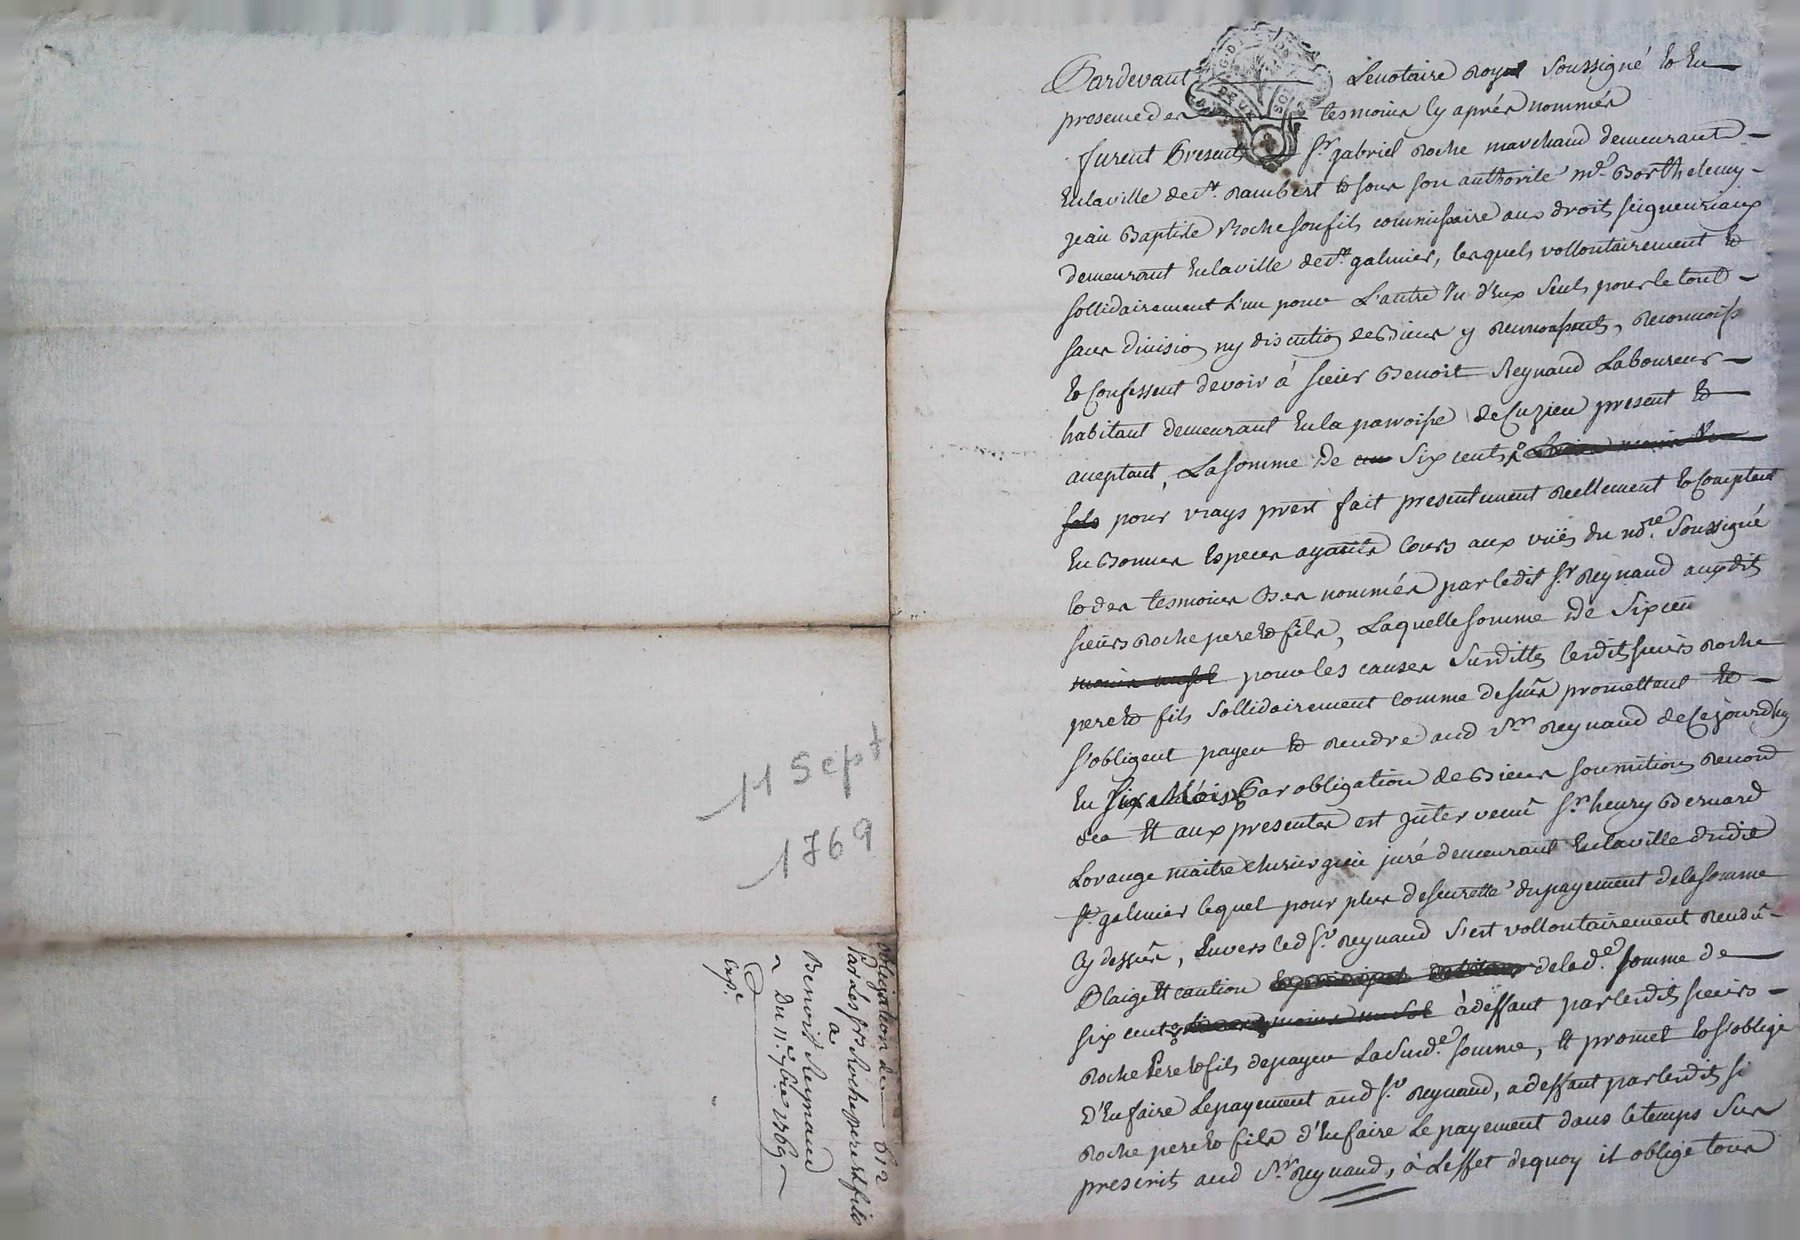 11 Sept
1769
obligation de 612
Par Les srs Roche pere et fils
a
Benoit Reynaud
Du 11.e 7bre 1769
Exp.e
Pardevant Lenotaire Royal Soussigné et En
presence des tesmoins cy aprés nommés
furent Presents Sr. gabriel Roche marchand demeurant
Enlaville de st. Rambert et sous son authorité me. Barthelemy
jean Baptiste Roche sonfils commissaire aux droits seigneuriaux
demeurant Enlaville de st. galmier, lesquels vollontairement et
sollidairement L'un pour L'autre Un d'Eux seuls pour le tout
sans division ny discution de Biens y renonssants, Reconnoiss
et Confessent devoir á sieur Benoit Reynaud Laboureur
habitant demeurant En la parroisse de Cuzieu present et
aceptant, La somme de six cents
pour vrays prest fait presentement Reellement et Comptent
En Bonnes Especes ayants Cours aux vuës du nore. Soussigné
et des tesmoins Bas nommés par ledit sr Reynaud auxdits
sieurs Roche pere et fils, Laquelle somme De Six cen
pour les causes Surdittes lesdits sieurs Roche
pere et fils Sollidairement Comme dessus promettent et
s'obligent payer et rendre aud Sr. Reynaud de Cejourdhuy
En Six Mois Par obligation de Biens soumitions Renond
des Et aux presentes est jntervenu Sr. henry Bernard
Lorange maitre Chirurgien juré demeurant Enlaville dudit
st. galmier lequel pour plus de seuretté du payement de la somme
Cy dessus, Envers led sr. Reynaud s'est vollontairement rendu
Plaige Et caution de lad.e somme de
six cents á deffaut par lesdits sieurs
Roche Pere et fils depayer La Susd.e somme, Et promet et s'oblige
D'En faire Lepayement aud sr. Reynaud, a deffaut par lesdits si
Roche pere et fils d'En faire Le payement dans le temps Sus
prescrit aud Sr. Reynaud, á L'effet dequoy il oblige tous